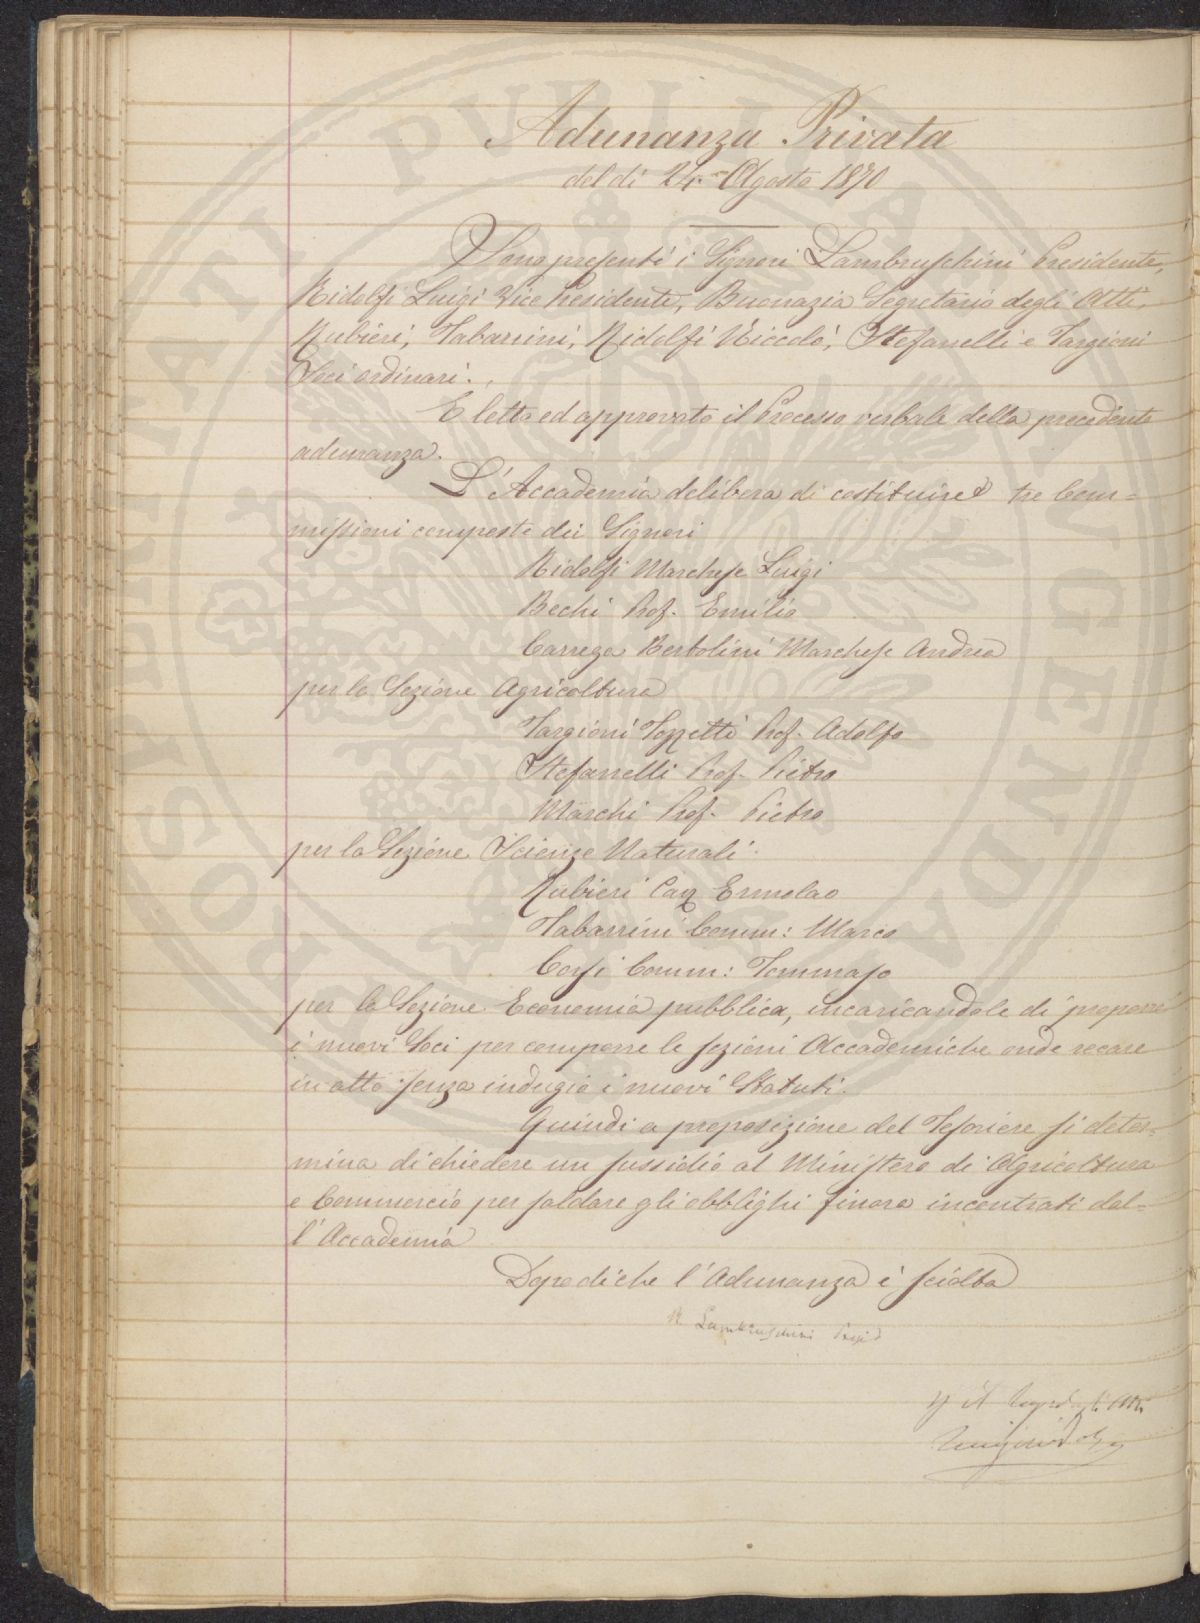 Adunanza Privata
del dì 24 Agosto 1870
Sono presenti i Signori Lambruschini Presidente,
Ridolfi Luigi Vice Presidente, Buonazia Segretario degli Atti,
Rubieri, Tabarrini, Ridolfi Niccolò, Stefanelli e Targioni
Soci ordinari.
E letto ed approvato il Processo verbale della precedente
adunanza.
L'Accademia delibera di costituire tre Com=
missioni composte dei Signori
Ridolfi Marchese Luigi
Bechi Prof. Emilio
Carrega Bertolini Marchese Andrea
per la Sezione Agricoltura
Targioni Tozzetti Prof. Adolfo
Stefanelli Prof. Pietro
Marchi Prof. Pietro
per la Sezione Scienze Naturali.
Rubieri Cav Ermolao
Tabarrini Comm: Marco
Corsi Comm: Tommaso
per la Sezione Economia pubblica, incaricandole di proporre
i nuovi Soci per comporre le sezioni Accademiche onde recare
in atto senza indugio i nuovi Statuti.
Quindi a proposizione del Tesoriere si deter=
mina di chiedere un sussidio al Ministero di Agricoltura
e Commercio per saldare gli obblighi finora incontrati dal=
l'Accademia
Dopo di che l'Adunanza è sciolta
R Lambruschini Presid
il degli Atti
PROSPERITATI PUBLICAE AUGENDAE